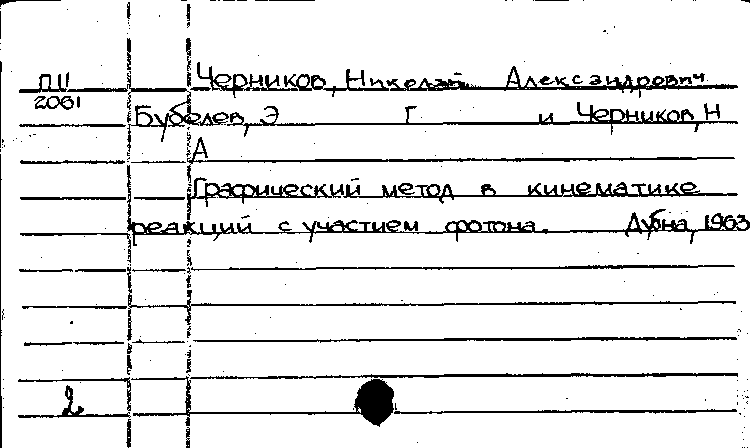 П11 Черников, Николай Александрович
2061
Бубелев, Э Г и Черников, Н
А
Графический метод в кинематике
реакций с участием фотона. Дубна, 1963
2